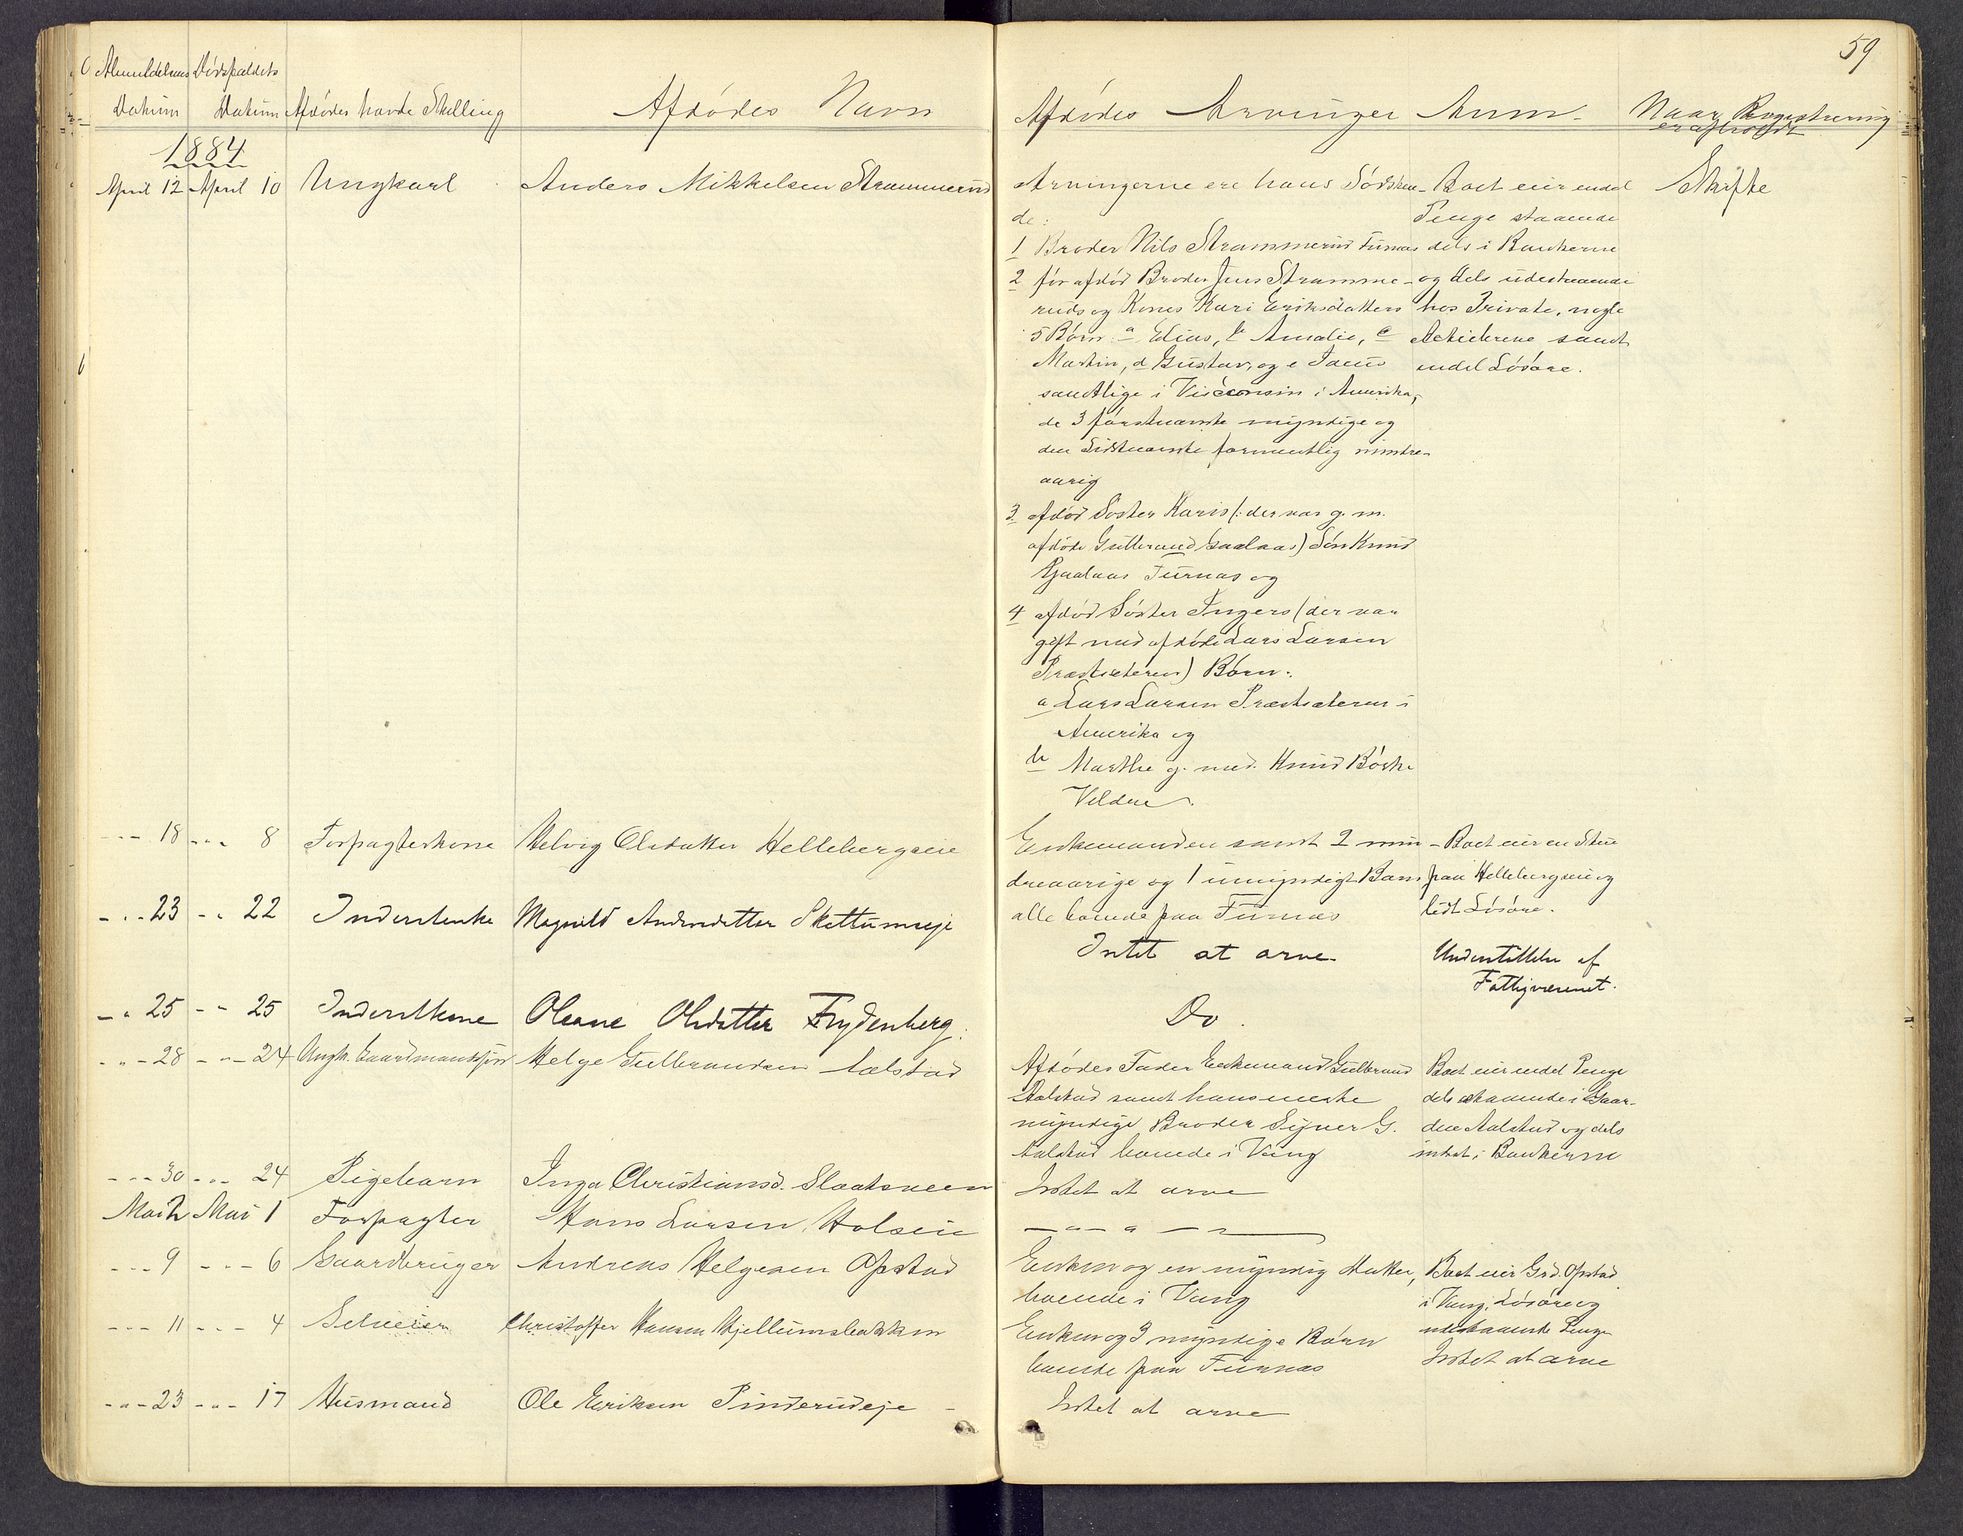 59
Anmeldelsens Dødsfaldets
Datum Datum Afdødes havde Stilling Afdødes Navn Afdødes Arvinger Anm. Naar Registrering
er afholdt
1884
April 12 April 10 Ungkarl Anders Mikkelsen Strammerud
Arvingerne ere hans Sødsken-
de:
1 Broder Nils Strammerud Furnæs
2 før afdød Broder Jens Stramme-
ruds og Kones Kari Eriksdatters
5 Børn: a Elias, b Amalie, c
Martin, d Gustav, og e
samtlige i Visconsin i Amerika,
de 3 førstnævnte myndige og
den Sidstnævnte formentlig mindre-
aarig
3 afdød Søster Karis (: der var g. m.
afdøde Gulbrand Gaalaas) Søn Knud
Gaalaas Furnæs og
4 afdød Søster Ingers (der var
gift med afdøde Lars Larsen
Præstsæteren) Børn:
a Lars Larsen Præstsæteren i
Amerika og
b Marthe g. med Knud Børke
Velden.
Boet eier endel
Penge staaende
dels i Bankerne
og dels udestaaende
hos Private, nogle
Aktiebreve samt
endel Løsøre.
Skifte
- - - 18 - - - 8 Forpagterkone Helvig Olsdatter Hellebergseie
Enkemanden samt 2 min-
dreaarige og 1 umyndigt Barn
alle boende paa Furnæs
Boet eier en Stue
paa Hellebergseie og
lidt Løsøre.
- - - 23 - - 22 Inderstenke Magnild Andersdatter Skattumseje
Intet at arve
Understøttelse af
Fattigvæsenet.
- - 25 - - 25 Inderstkone Oleane Olsdatter Frydenberg.
Do.
- - - 28 - - - 24 Ungk. Gaardmandssøn Helge Gulbrandsen Aalstad
Afdødes Fader Enkemand Gulbrand
Aalstad samt hans eneste
myndige Broder Syver G.
Aalstad boende i Vang
Boet eier endel Penge
dels staaende i Gaar-
den Aalstad og dels
indsat i Bankerne
- - - 30 - - - 24 Pigebarn Inga Christiansd. Slaatsveen
Intet at arve
Mai 2 Mai 1 Forpagter Hans Larsen Holsen
- - - - -
- - - 9 - - - 6 Gaardbruger Andreas Helgesen Opstad
Enken og en myndig Datter,
boende i Vang
Boet eier Grd. Opstad
i Vang, Løsøre og
udestaaende Penge
- - - 11 - - - 4 Selveier Christoffer Hansen Hjellumsbakken
Enken og 3 myndige Børn
boende paa Furnæs
Intet at arve
- - - 23 - - - 17 Husmand Ole Eriksen Pinderudeje
Intet at arve